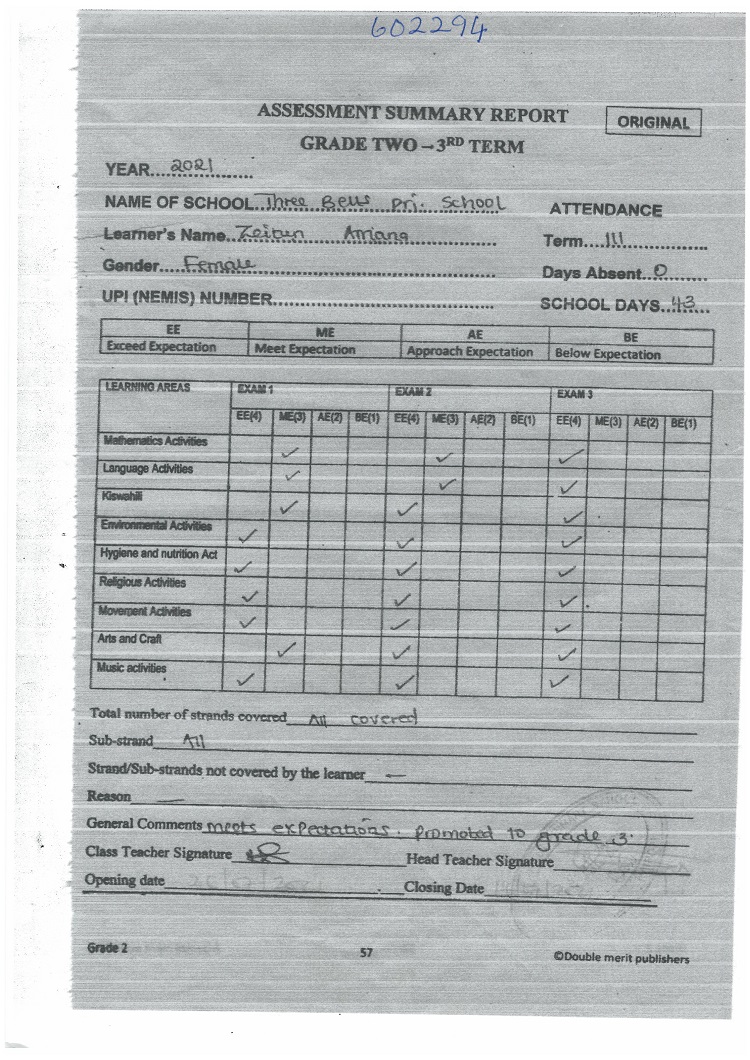 602294
ASSESSMENT SUMMARY REPORT
ORIGINAL
GRADE TWO – 3RD TERM
YEAR....2021..........
NAME OF SCHOOL..Three Bells Pri. School
ATTENDANCE
Learner's Name..Zeitun Amana
Term....III..............
Gender....Female
Days Absent..0........
UPI (NEMIS) NUMBER..........................................
SCHOOL DAYS..43...
EE ME AE BE
Exceed Expectation Meet Expectation Approach Expectation Below Expectation
LEARNING AREAS EXAM 1 EXAM 2 EXAM 3
EE(4) ME(3) AE(2) BE(1) EE(4) ME(3) AE(2) BE(1) EE(4) ME(3) AE(2) BE(1)
Mathematics Activities ✓ ✓ ✓
Language Activities ✓ ✓ ✓
Kiswahili ✓ ✓ ✓
Environmental Activities ✓ ✓ ✓
Hygiene and nutrition Act ✓ ✓ ✓
Religious Activities ✓ ✓ ✓
Movement Activities ✓ ✓ ✓
Arts and Craft ✓ ✓ ✓
Music activities ✓ ✓ ✓
Total number of strands covered All covered
Sub-strand All
Strand/Sub-strands not covered by the learner —
Reason —
General Comments meets expectations. promoted to grade 3.
Class Teacher Signature Head Teacher Signature
Opening date Closing Date
Grade 2 57 ©Double merit publishers